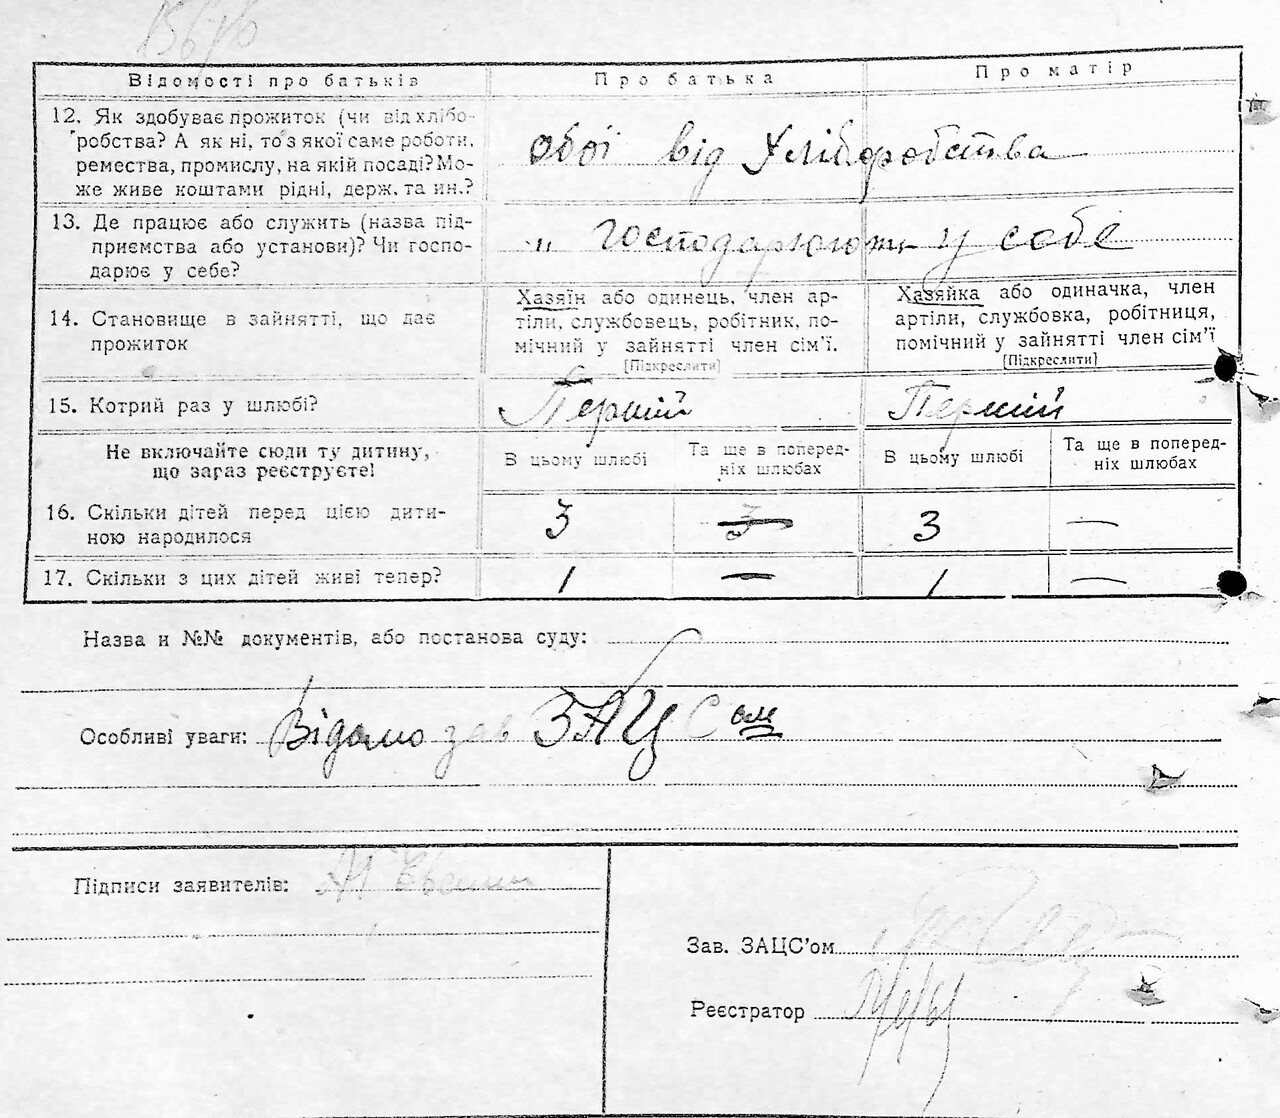 Відомості про батьків Про батька Про матір
12. Як здобуває прожиток (чи від хлібо-
робства? А як ні, то з якої саме роботи,
ремества, промислу, на якій посаді? Мо-
же живе коштами рідні, держ. та ин.?
обої від Хліборобства
13. Де працює або служить (назва під-
приємства або установи)? Чи госпо-
дарює у себе?
„ господарюють у собе
14. Становище в зайнятті, що дає
прожиток
Хазяїн або одинець, член ар-
тілі, службовець, робітник, по-
мічний у зайнятті член сім'ї.
[Підкреслити]
Хазяйка або одиначка, член
артілі, службовка, робітниця,
помічний у зайнятті член сім'ї
[Підкреслити]
15. Котрий раз у шлюбі? Перший Перший
Не включайте сюди ту дитину,
що зараз реєструєте!
В цьому шлюбі
Та ще в поперед-
ніх шлюбах
В цьому шлюбі
Та ще в поперед-
ніх шлюбах
16. Скільки дітей перед цією дити-
ною народилося
3 3 3 —
17. Скільки з цих дітей живі тепер? 1 — 1 —
Назва и №№ документів, або постанова суду:
Особливі уваги: Відомо зав ЗАЦСом
Підписи заявителів:
Зав. ЗАЦС'ом
Реєстратор